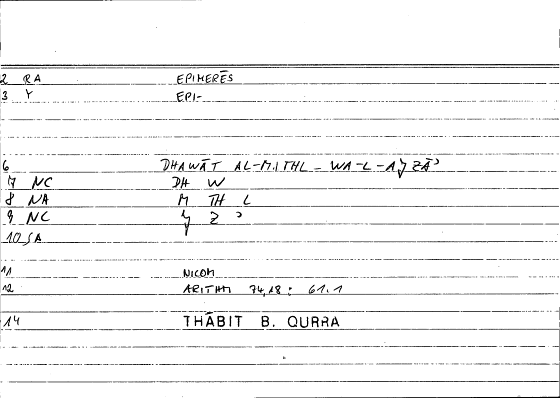 2 RA EPIMERĒS
3 Y EPI-
6 DHAWĀT AL-MITHL-WA-L-AJZĀʾ
7 NC DH W
8 NA M TH L
9 NC J Z ʾ
10 SA
11 NICOM
12 ARITHM 74,18: 61.1
14 THĀBIT B. QURRA